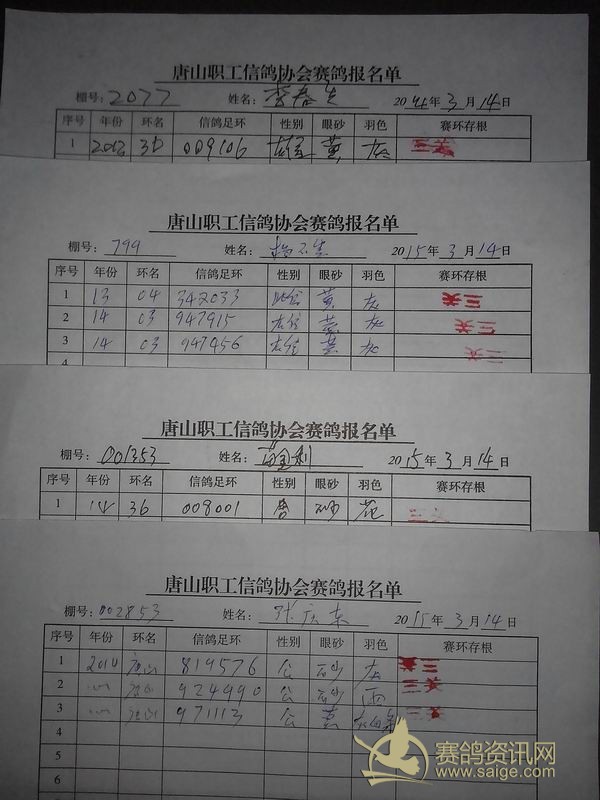 唐山职工信鸽协会赛鸽报名单
棚号: 2077 姓名: 李春生 20 年 3 月 14 日
序号 年份 环名 信鸽足环 性别 眼砂 羽色 赛环存根
1 2012 36 009106 黄 灰 三关
唐山职工信鸽协会赛鸽报名单
棚号: 799 姓名: 杨 生 2015 年 3 月 14 日
序号 年份 环名 信鸽足环 性别 眼砂 羽色 赛环存根
1 13 04 342033 黄 灰 三关
2 14 03 947915 黄 灰 三关
3 14 03 947456 黄 灰 三关
4
唐山职工信鸽协会赛鸽报名单
棚号: 001353 姓名: 利 2015 年 3 月 14 日
序号 年份 环名 信鸽足环 性别 眼砂 羽色 赛环存根
1 14 36 008001 砂 花 三关
唐山职工信鸽协会赛鸽报名单
棚号: 002853 姓名: 张庆东 2015 年 3 月 14 日
序号 年份 环名 信鸽足环 性别 眼砂 羽色 赛环存根
1 2010 唐山 819576 公 砂 灰 三关
2 〃 唐山 924990 公 砂 雨 三关
3 〃 唐山 971113 公 黄 三关
4
5
6
赛鸽资讯网
www.saige.com